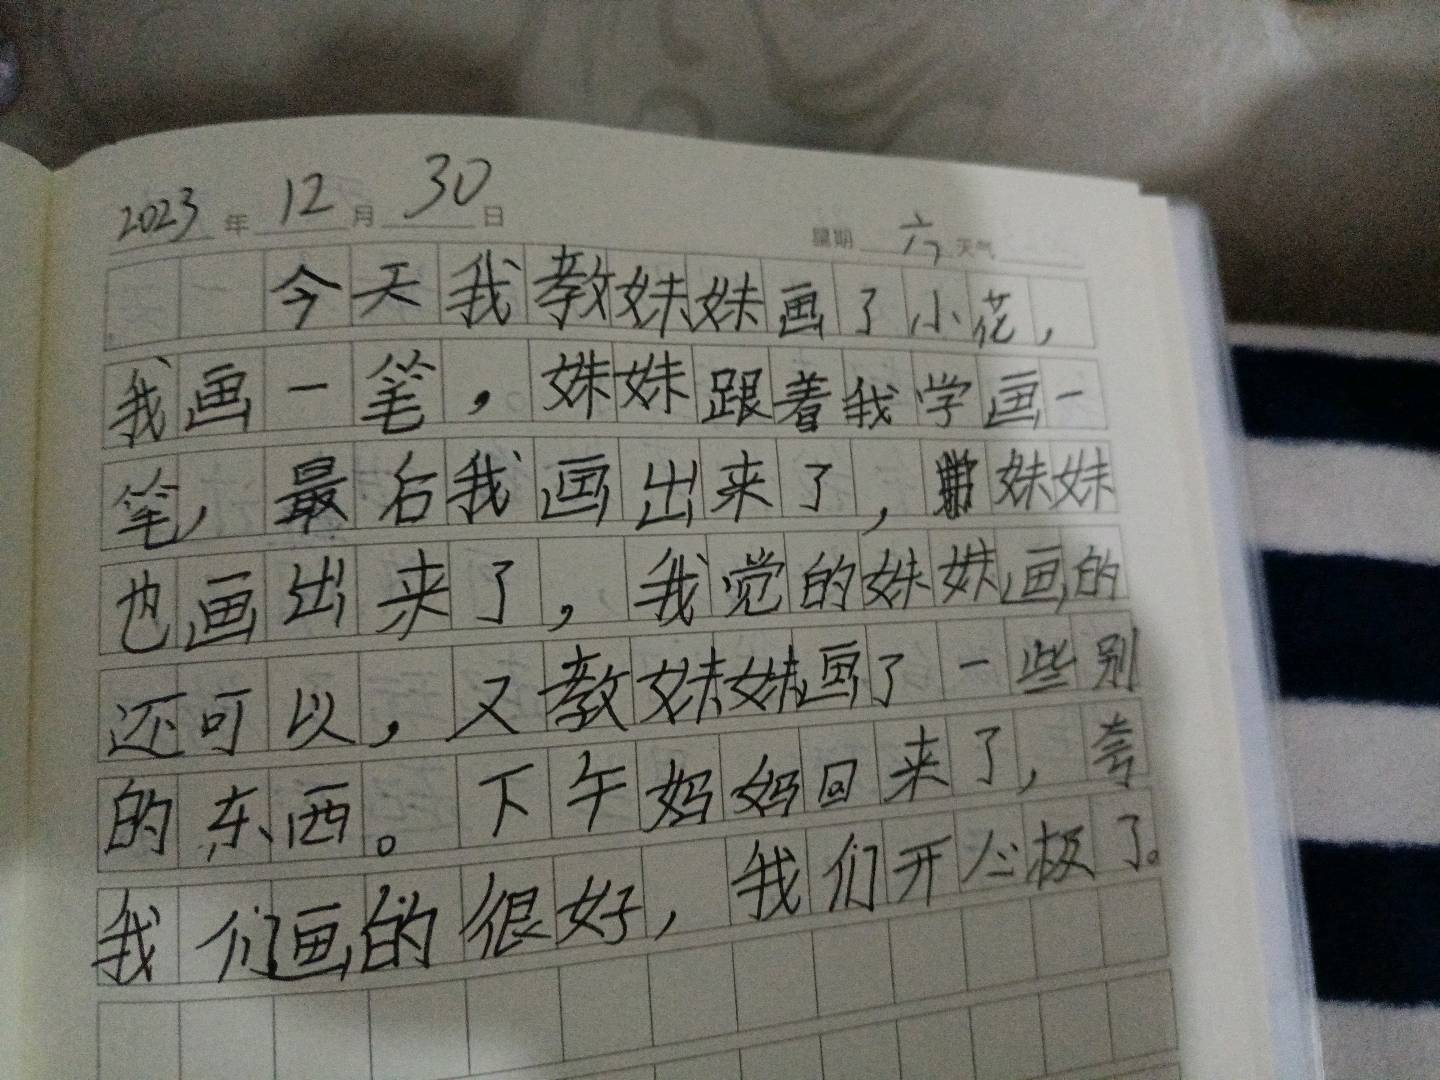 2023年12月30日 星期六 天气
今天我教妹妹画了小花，
我画一笔，妹妹跟着我学画一
笔，最后我画出来了，妹妹
也画出来了，我觉的妹妹画的
还可以，又教妹妹画了一些别
的东西。下午妈妈回来了，夸
我们画的很好，我们开心极了。